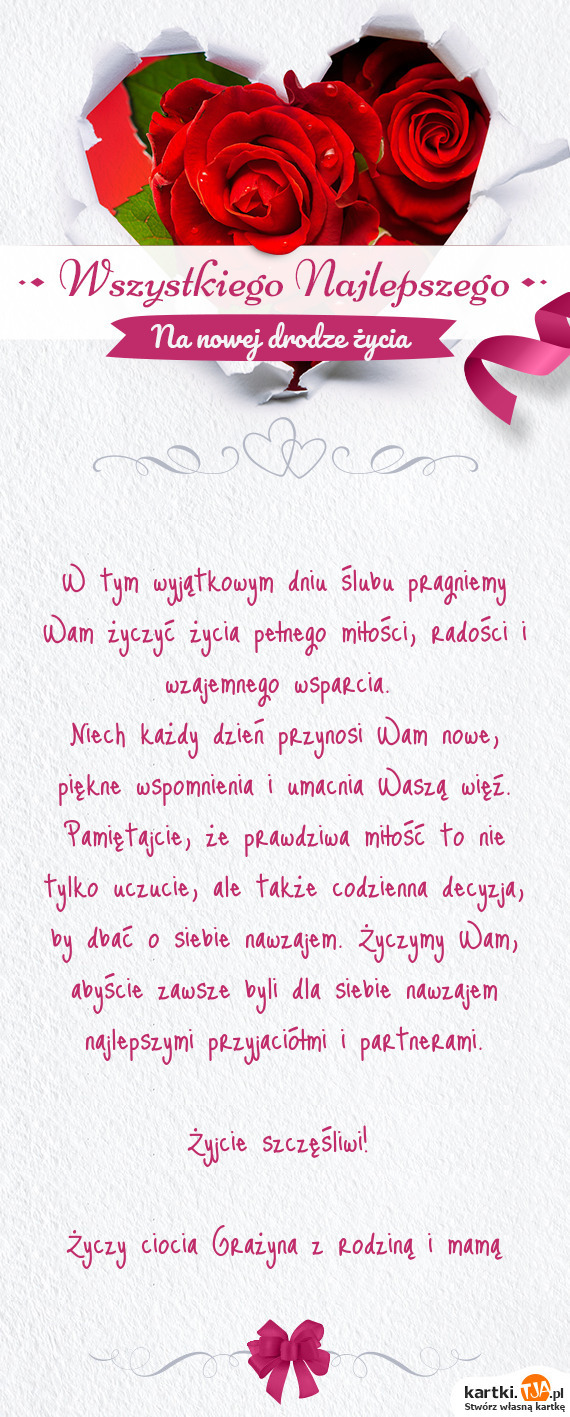 Wszystkiego Najlepszego
Na nowej drodze życia
W tym wyjątkowym dniu ślubu pragniemy
Wam życzyć życia pełnego miłości, radości i
wzajemnego wsparcia.
Niech każdy dzień przynosi Wam nowe,
piękne wspomnienia i umacnia Waszą więź.
Pamiętajcie, że prawdziwa miłość to nie
tylko uczucie, ale także codzienna decyzja,
by dbać o siebie nawzajem. Życzymy Wam,
abyście zawsze byli dla siebie nawzajem
najlepszymi przyjaciółmi i partnerami.
Żyjcie szczęśliwi!
Życzy ciocia Grażyna z rodziną i mamą
kartki.TJA.pl
Stwórz własną kartkę